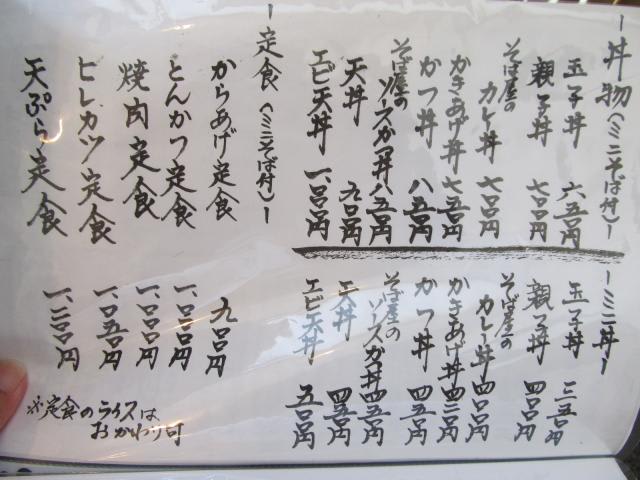 ー丼物(ミニそば付)ー
玉子丼 六五〇円
親子丼 七〇〇円
そば屋の
カレー丼 七〇〇円
かきあげ丼 七五〇円
かつ丼 八五〇円
そば屋の
ソースかつ丼 八五〇円
天丼 九〇〇円
エビ天丼 一、〇〇〇円
ーミニ丼ー
玉子丼 三五〇円
親子丼 四〇〇円
そば屋の
カレー丼 四〇〇円
かきあげ丼 四三〇円
かつ丼 四五〇円
そば屋の
ソースかつ丼 四五〇円
天丼 四五〇円
エビ天丼 五〇〇円
ー定食(ミニそば付)ー
からあげ定食 九〇〇円
とんかつ定食 一、〇〇〇円
焼肉定食 一、〇〇〇円
ヒレカツ定食 一、〇五〇円
天ぷら定食 一、二〇〇円
※定食のライスは
おかわり可